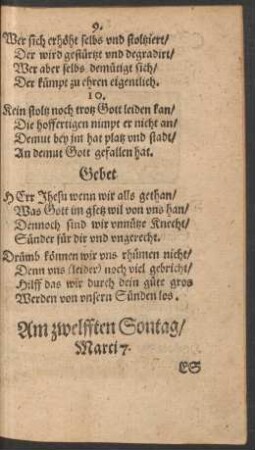 9.
Wer sich erhöht selbs vnd stoltziert/
Der wird gestürtzt vnd degradirt/
Wer aber selbs demütigt sich/
Der kümpt zu ehren eigentlich.
10.
Kein stoltz noch trotz Gott leiden kan/
Die hoffertigen nimpt er nicht an/
Demut bey jm hat platz vnd stadt/
An demut Gott gefallen hat.
Gebet
HErr Jhesu wenn wir alls gethan/
Was Gott im gsetz wil von vns han/
Dennoch sind wir vnnütze Knecht/
Sünder für dir vnd vngerecht.
Drümb können wir vns rhümen nicht/
Denn vns (leider) noch viel gebricht/
Hilff das wir durch dein güte gros
Werden von vnsern Sünden los.
Am zwelfften Sontag/
Marci 7.
ES